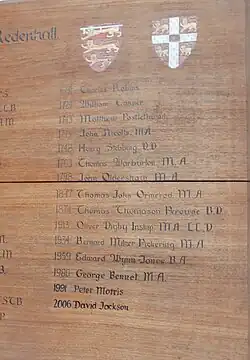 Redenhall.
Charles Robins
William Cooper
Matthew Postlethwayt
John Nicolls M.A.
Henry Stebbing D.D.
Thomas Warburton M.A.
1798 John Oldershaw M.A.
1847 Thomas John Ormerod M.A.
1874 Thomas Thomason Perowne B.D.
1913 Oliver Digby Inskip M.A. LL.D
1934 Bernard Milner Pickering M.A.
1959 Edward Wynn Jones B.A.
1980 George Bennet M.A.
1991 Peter Morris
2006 David Jackson